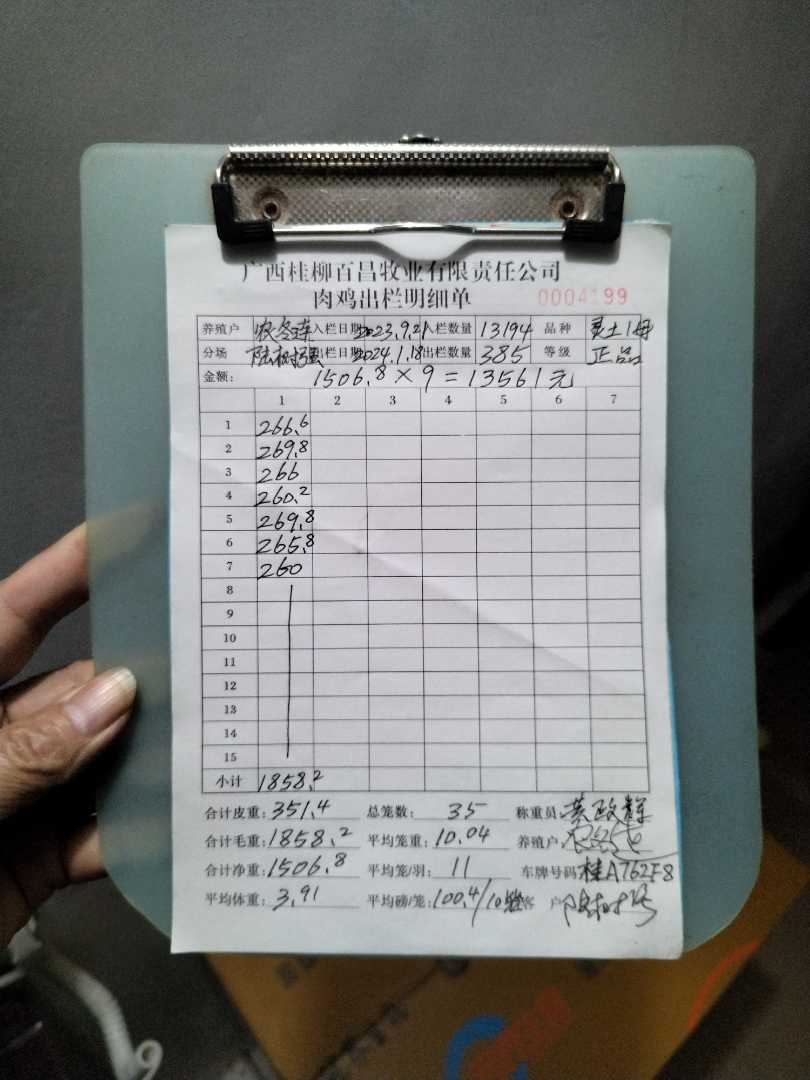 广西桂柳百昌牧业有限责任公司
肉鸡出栏明细单 0004199
养殖户 农冬连 入栏日期 2023.9.21 入栏数量 13194 品种 灵土1母
分场 出栏日期 2024.1.18 出栏数量 385 等级 正品
金额: 1506.8×9=13561元
1 2 3 4 5 6 7
1 266.6
2 269.8
3 266
4 260.2
5 269.8
6 265.8
7 260
8
9
10
11
12
13
14
15
小计 1858.2
合计皮重: 351.4 总笼数: 35 称重员: 黄政辉
合计毛重: 1858.2 平均笼重: 10.04 养殖户:
合计净重: 1506.8 平均笼/羽: 11 车牌号码 桂A762F8
平均体重: 3.91 平均磅/笼: 100.4/10笼 客户